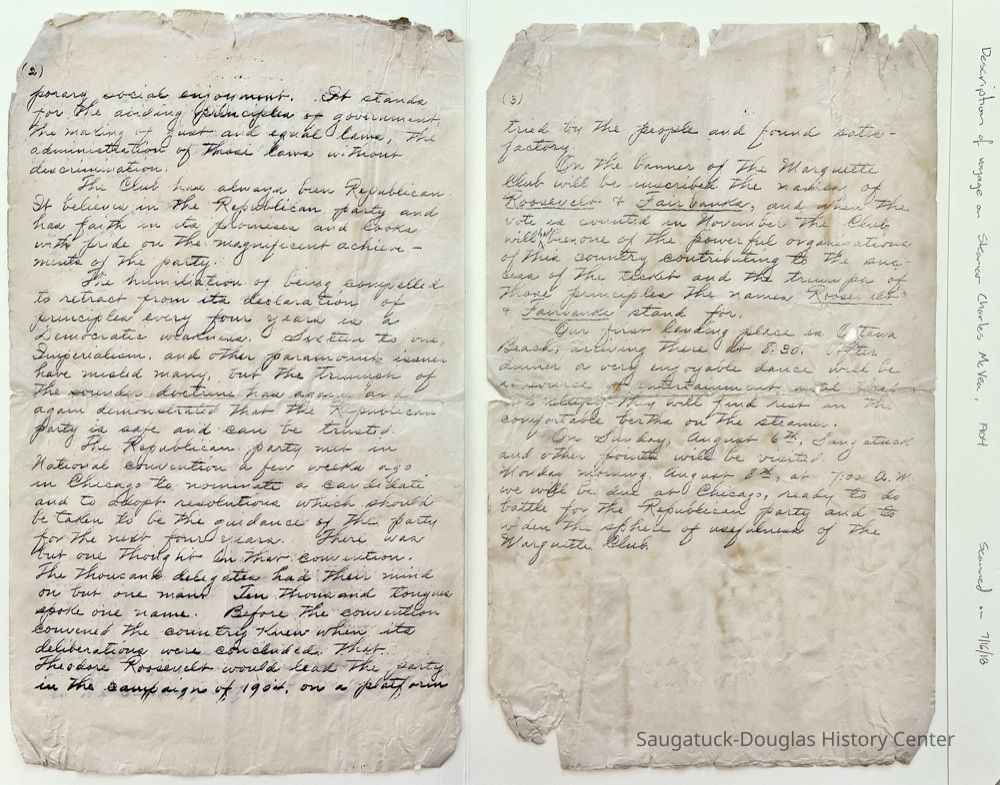 (2)
porary social enjoyment. It stands
for the abiding principles of government,
the making of just and equal laws, the
administration of those laws without
discrimination.
The Club has always been Republican.
It believes in the Republican party and
has faith in its promises and looks
with pride on the magnificent achieve-
ments of the party.
The humiliation of being compelled
to retract from its declaration of
principles every four years is a
Democratic weakness. Sixteen to one,
Imperialism, and other paramount issues
have misled many, but the triumph of
the sounder doctrine has again and
again demonstrated that the Republican
party is safe and can be trusted.
The Republican party met in
National convention a few weeks ago
in Chicago to nominate a candidate
and to adopt resolutions which should
be taken to be the guidance of the party
for the next four years. There was
but one thought in that convention.
The thousand delegates had their mind
on but one man. Ten thousand tongues
spoke one name. Before the convention
convened the country knew when its
deliberations were concluded, that
Theodore Roosevelt would lead the party
in the campaign of 1904, on a platform
(3)
tried by the people and found satis-
factory.
On the banner of the Marquette
Club will be inscribed the names of
Roosevelt & Fairbanks, and when the
vote is counted in November the Club
will be one of the powerful organizations
of this country contributing to the suc-
cess of the ticket and the triumph of
those principles the names Roosevelt
& Fairbanks stand for.
Our first landing place is Ottawa
Beach, arriving there at 8:30. After
dinner a very enjoyable dance will be
a source of entertainment and
they will find rest in the
comfortable berths on the steamer.
On Sunday, August 6th, Saugatuck
and other points will be visited.
Monday morning, August 8th, at 7:00 A.M.
we will be due at Chicago, ready to do
battle for the Republican party and to
widen the sphere of usefulness of the
Marquette Club.
Description of voyage on Steamer Charles McVea, 1904
Scanned on 7/16/18
Saugatuck-Douglas History Center